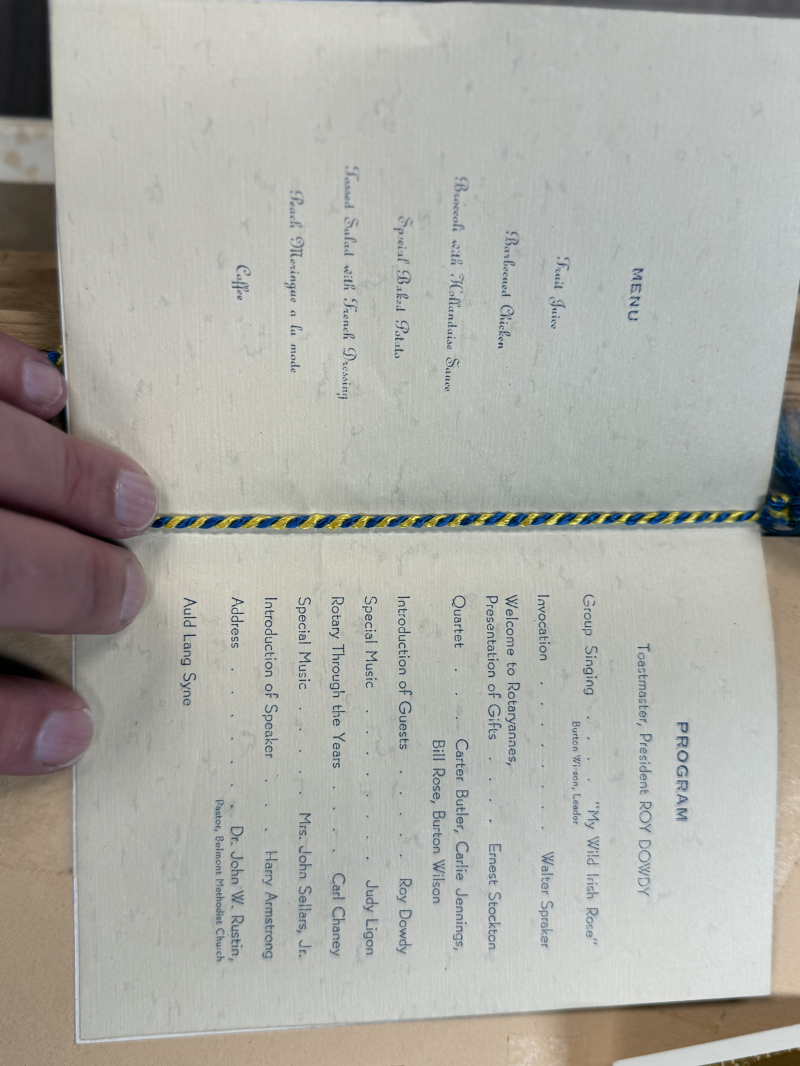 MENU
Fruit Juice
Barbecued Chicken
Broccoli with Hollandaise Sauce
Special Baked Potato
Tossed Salad with French Dressing
Peach Meringue a la mode
Coffee
PROGRAM
Toastmaster, President ROY DOWDY
Group Singing . . . . "My Wild Irish Rose"
Burton Wilson, Leader
Invocation . . . . . . . Walter Spraker
Welcome to Rotaryannes,
Presentation of Gifts . . . . Ernest Stockton
Quartet . . . Carter Butler, Carlie Jennings,
Bill Rose, Burton Wilson
Introduction of Guests . . . . Roy Dowdy
Special Music . . . . . . . Judy Ligon
Rotary Through the Years . . . Carl Chaney
Special Music . . . . Mrs. John Sellars, Jr.
Introduction of Speaker . . . Harry Armstrong
Address . . . . . . Dr. John W. Rustin,
Pastor, Belmont Methodist Church
Auld Lang Syne